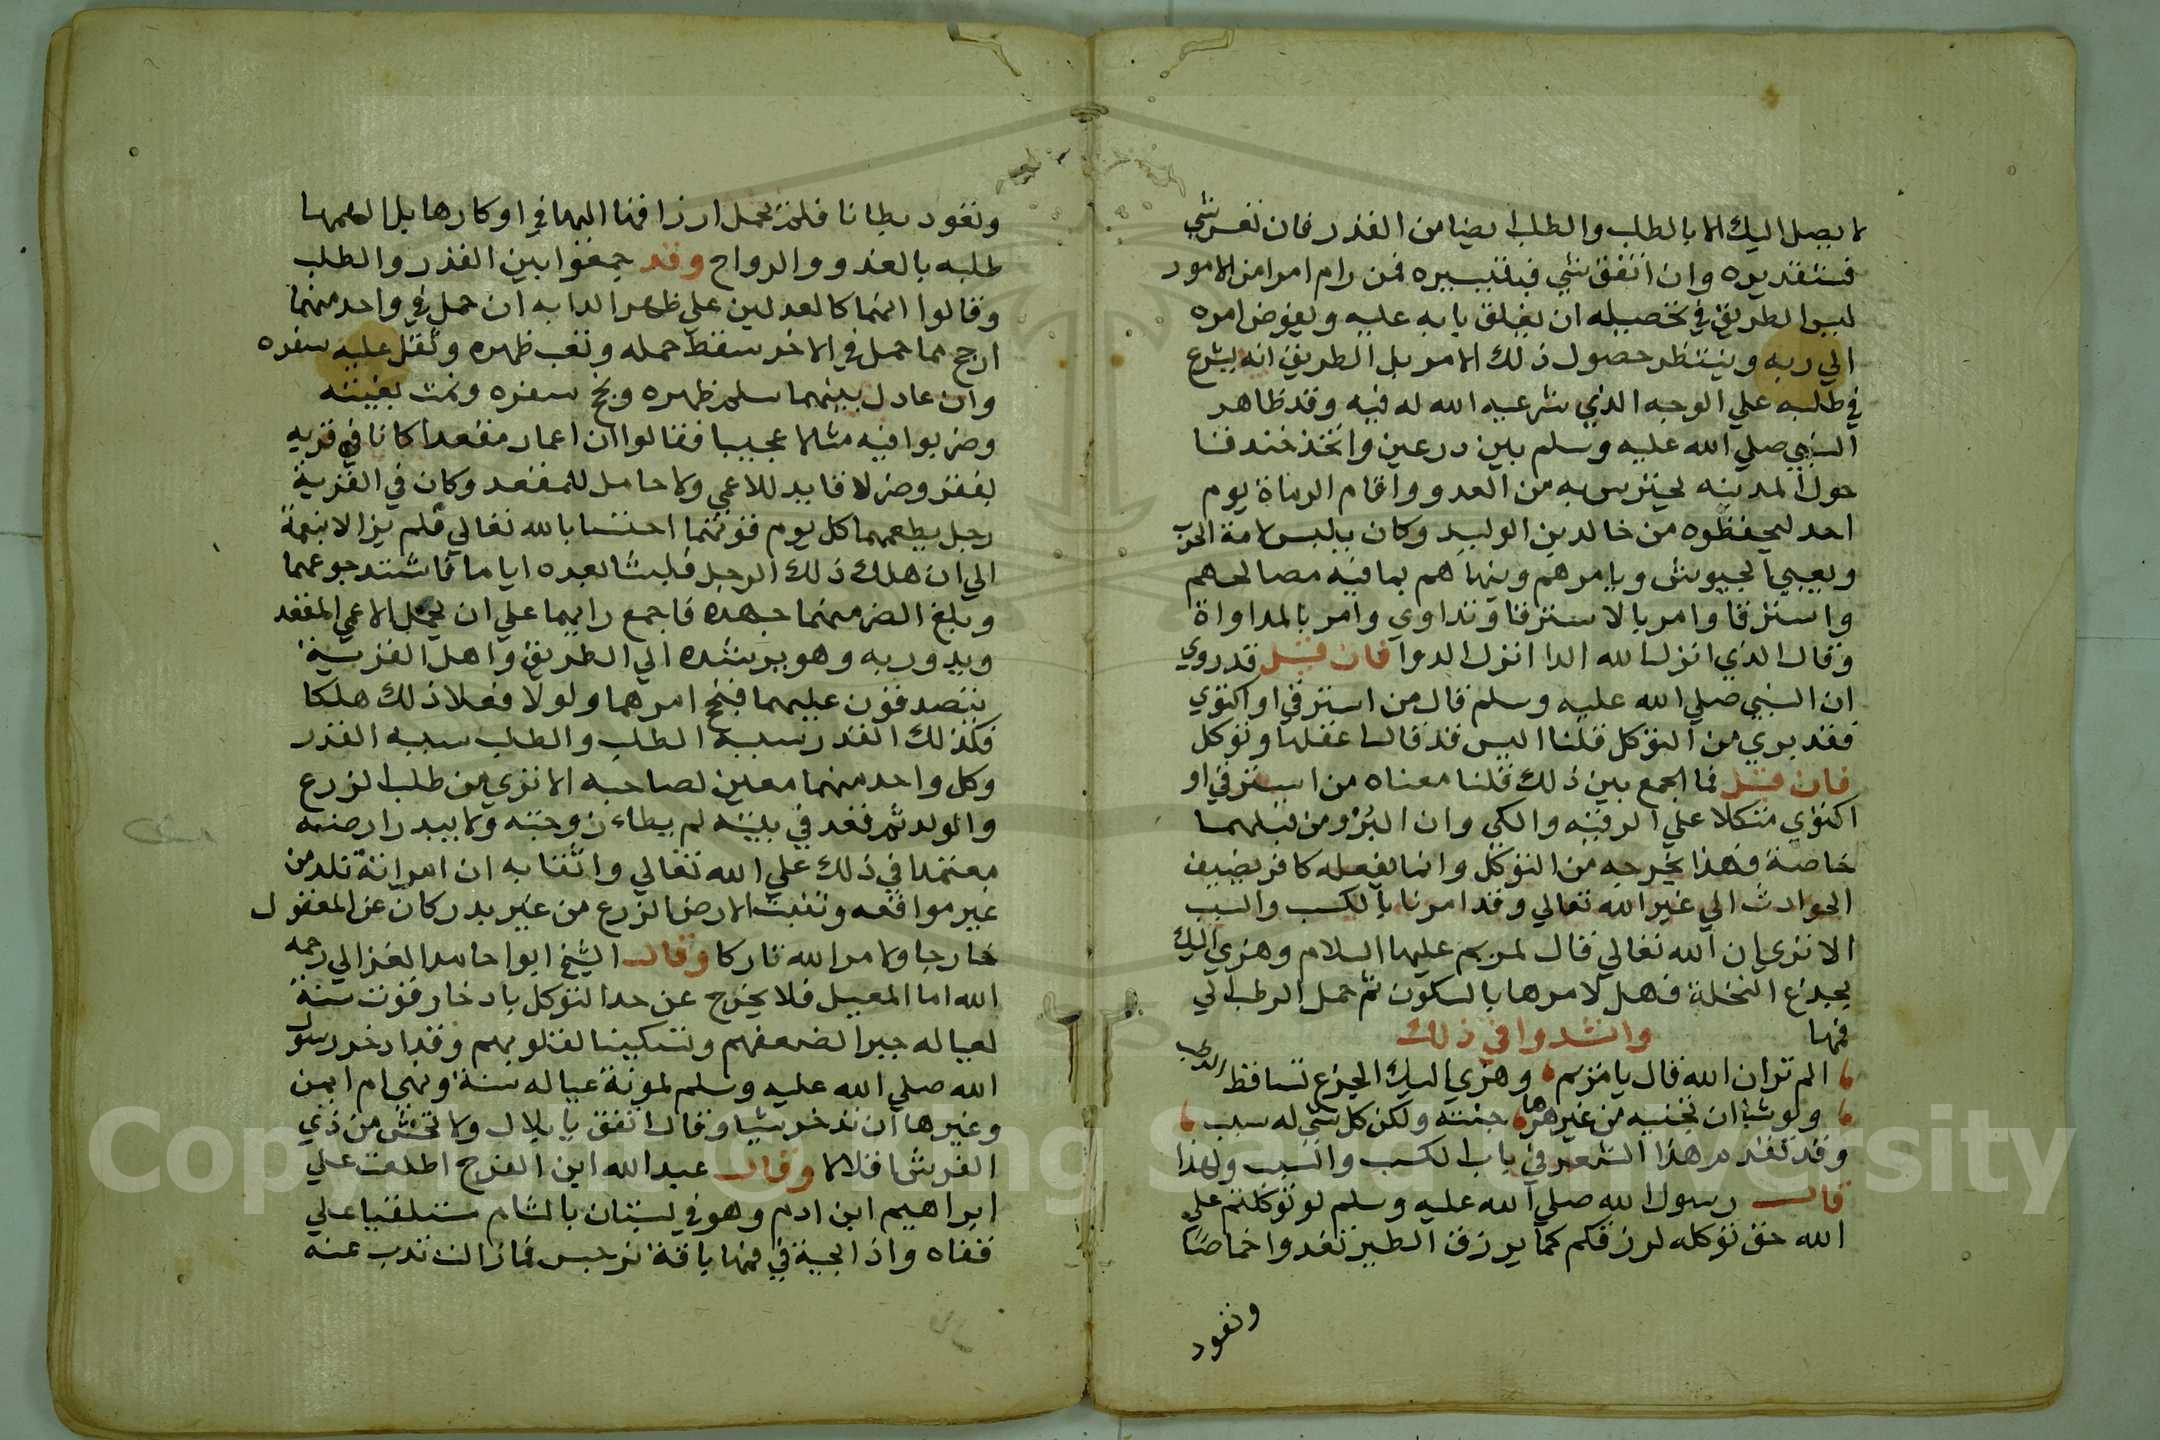 لا يصل اليك الا بالطلب والطلب ايضا من القدر فان تعسر شي
فبتقديره وان اتفق شي فبتيسيره فمن رام امرا من الامور
ليس الطريق في تحصيله ان يغلق بابه عليه ويفوض امره
الي ربه وينتظر حصول ذلك الامر بل الطريق انه يشرع
في طلبه علي الوجه الذي شرعه الله له فيه وقد ظاهر
النبي صلي الله عليه وسلم بين درعين واتخذ خندقا
حول المدينه يحترس به من العدو واقام الرماة يوم
احد ليحفظوه من خالد بن الوليد وكان يلبس لامة الحرب
ويعبي الجيوش ويامرهم وينهاهم بما فيه مصالحهم
واسترقا وامر بالاسترقا وتداوي وامر بالمداواة
وقال الذي انزل الله الدا انزل الدوا فان قيل قد روي
ان النبي صلي الله عليه وسلم قال من استرقي او اكتوي
فقد بري من التوكل قلنا اليس قد قال اعقلها وتوكل
فان قيل فما الجمع بين ذلك قلنا معناه من استرقي او
اكتوي متكلا علي الرقيه والكي وان البرؤ من قبلهما
خاصة فهذا يخرجه من التوكل وانما يفعله كافر يضيف
الحوادث الي غير الله تعالي وقد امرنا بالكسب والسبب
الا تري ان الله تعالي قال لمريم عليها السلام وهزي اليك
بجذع النخلة فهل لا امرها بالسكون ثم حمل الرطب الي
فمها وانشدوا في ذلك
الم تران الله قال يا مريم وهزي اليك الجزع تساقط الرطب
ولو شا ان تجنيه من غير هزها جنته ولكن كل شي له سبب
وقد تقدم هذا الشعر في باب الكسب والسبب ولهذا
قال رسول الله صلي الله عليه وسلم لو توكلتم علي
الله حق توكله لرزقكم كما يرزق الطير تغدوا خماصًا
وتعود
وتعود بطانا فلم تحمل ارزاقها اليها في اوكارها بل الهمها
طلبه بالغدو والرواح وقد جمعوا بين القدر والطلب
وقالوا انهما كالعدلين علي ظهر الدابه ان حمل في واحد منهما
ارجح مما حمل في الاخر سقط حمله وتعب ظهره وثقل عليه سفره
وان عادل بينهما سلم ظهره ونجح سفره وتمت بغيته
وضربوا فيه مثلا عجيبا فقالوا ان اعما ومقعدا كانا في قريه
بفقر وضر لا قايد للاعمي ولا حامل للمقعد وكان في القرية
رجل يطعمهما كل يوم قوتهما احتسابا لله تعالي فلم يزالا بنعمة
الي ان هلك ذلك الرجل فلبثا بعده اياما فاشتد جوعهما
وبلغ الضر منهما جهده فاجمع رايهما علي ان يحمل الاعمي المقعد
ويدور به وهو يرشده الي الطريق واهل القرية
يتصدقون عليهما فنجح امرهما ولولا فعلا ذلك هلكا
فكذلك القدر سببه الطلب والطلب سببه القدر
وكل واحد منهما معين لصاحبه الا تري من طلب الزرع
والولد ثم قعد في بيته لم يطاء زوجته ولا يبدرا رضه
معتمدا في ذلك علي الله تعالي واثقا به ان امراته تلد من
غير مواقعه وتنبت الارض الزرع من غير بدر كان عن المعقول
خارجا ولا مر الله تاركا وقال الشيخ ابوا حامد الغزالي رحمه
الله اما المعيل فلا يخرج عن حد التوكل بادخار قوت سنة
لعياله جبرا لضعفهم وتسكينا لقلوبهم وقد ادخر رسول
الله صلي الله عليه وسلم لمونة عياله سنة ونهي ام ايمن
وغيرها ان تدخر شيا وقال انفق يا بلال ولا تخش من ذي
العرش اقلالا وقال عبد الله ابن الفرج اطلعت علي
ابراهيم ابن ادم وهو في بستان بالشام مستلقيا علي
قفاه واذا بحية في فمها باقة نرجس فما زالت تدب عنه
Copyright © King Saud University